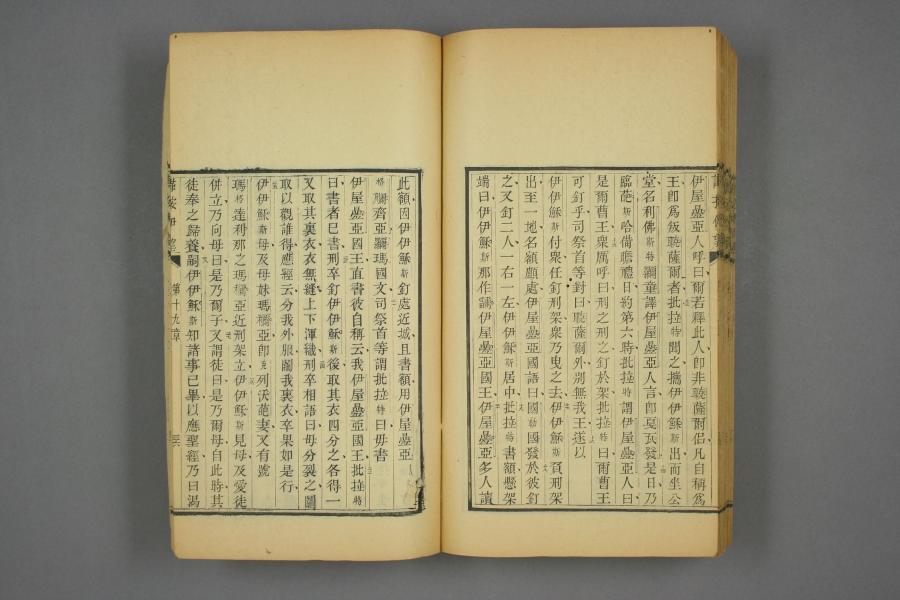 伊屋叠亞人呼曰爾若釋此人卽非𠼤薩爾侶凡自稱爲
王卽爲叛𠼤薩爾者批拉特聞之攜伊伊穌斯出而坐公
堂名利佛斯特羅童譯伊屋叠亞人言卽戛瓦發是日乃
臨葩斯哈備瞻禮日約第六時批拉特謂伊屋叠亞人曰
是爾曹王衆厲呼曰刑之刑之釘於架批拉特曰爾曹王
可釘乎司祭首等對曰𠼤薩爾外別無我王遂以
伊伊穌斯付衆任釘刑架衆乃曳之去伊伊穌斯負刑架
出至一地名額顱處伊屋叠亞國語曰國勒國發於彼釘
之又釘二人一右一左伊伊穌斯居中批拉特書額懸架
端曰伊伊穌斯那作譌伊屋叠亞國王伊屋叠亞多人讀
此額因伊伊穌斯釘處近城且書額用伊屋叠亞
格爾齊亞羅瑪國文司祭首等謂批拉特曰毋書
伊屋叠亞國王直書彼自稱云我伊屋叠亞國王批拉特
曰書者已書刑卒釘伊伊穌斯後取其衣四分之各得一
又取其裏衣衣無縫上下渾織刑卒相語曰毋分裂之鬮
取以觀誰得應經云分我外服鬮我裏衣卒果如是行
伊伊穌斯母及母妹瑪利亞卽克列沃葩妻又有號
瑪格達利那之瑪利亞近刑架立伊伊穌斯見母及愛徒
倂立乃向母曰是乃爾子又謂徒曰是乃爾母自此時其
徒奉之歸養嗣伊伊穌斯知諸事已畢以應聖經乃曰渴
第十九章